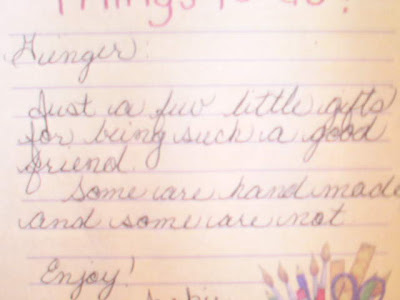 Things to do!
Ginger:
Just a few little gifts
for being such a good
friend.
Some are handmade
and some are not
Enjoy!